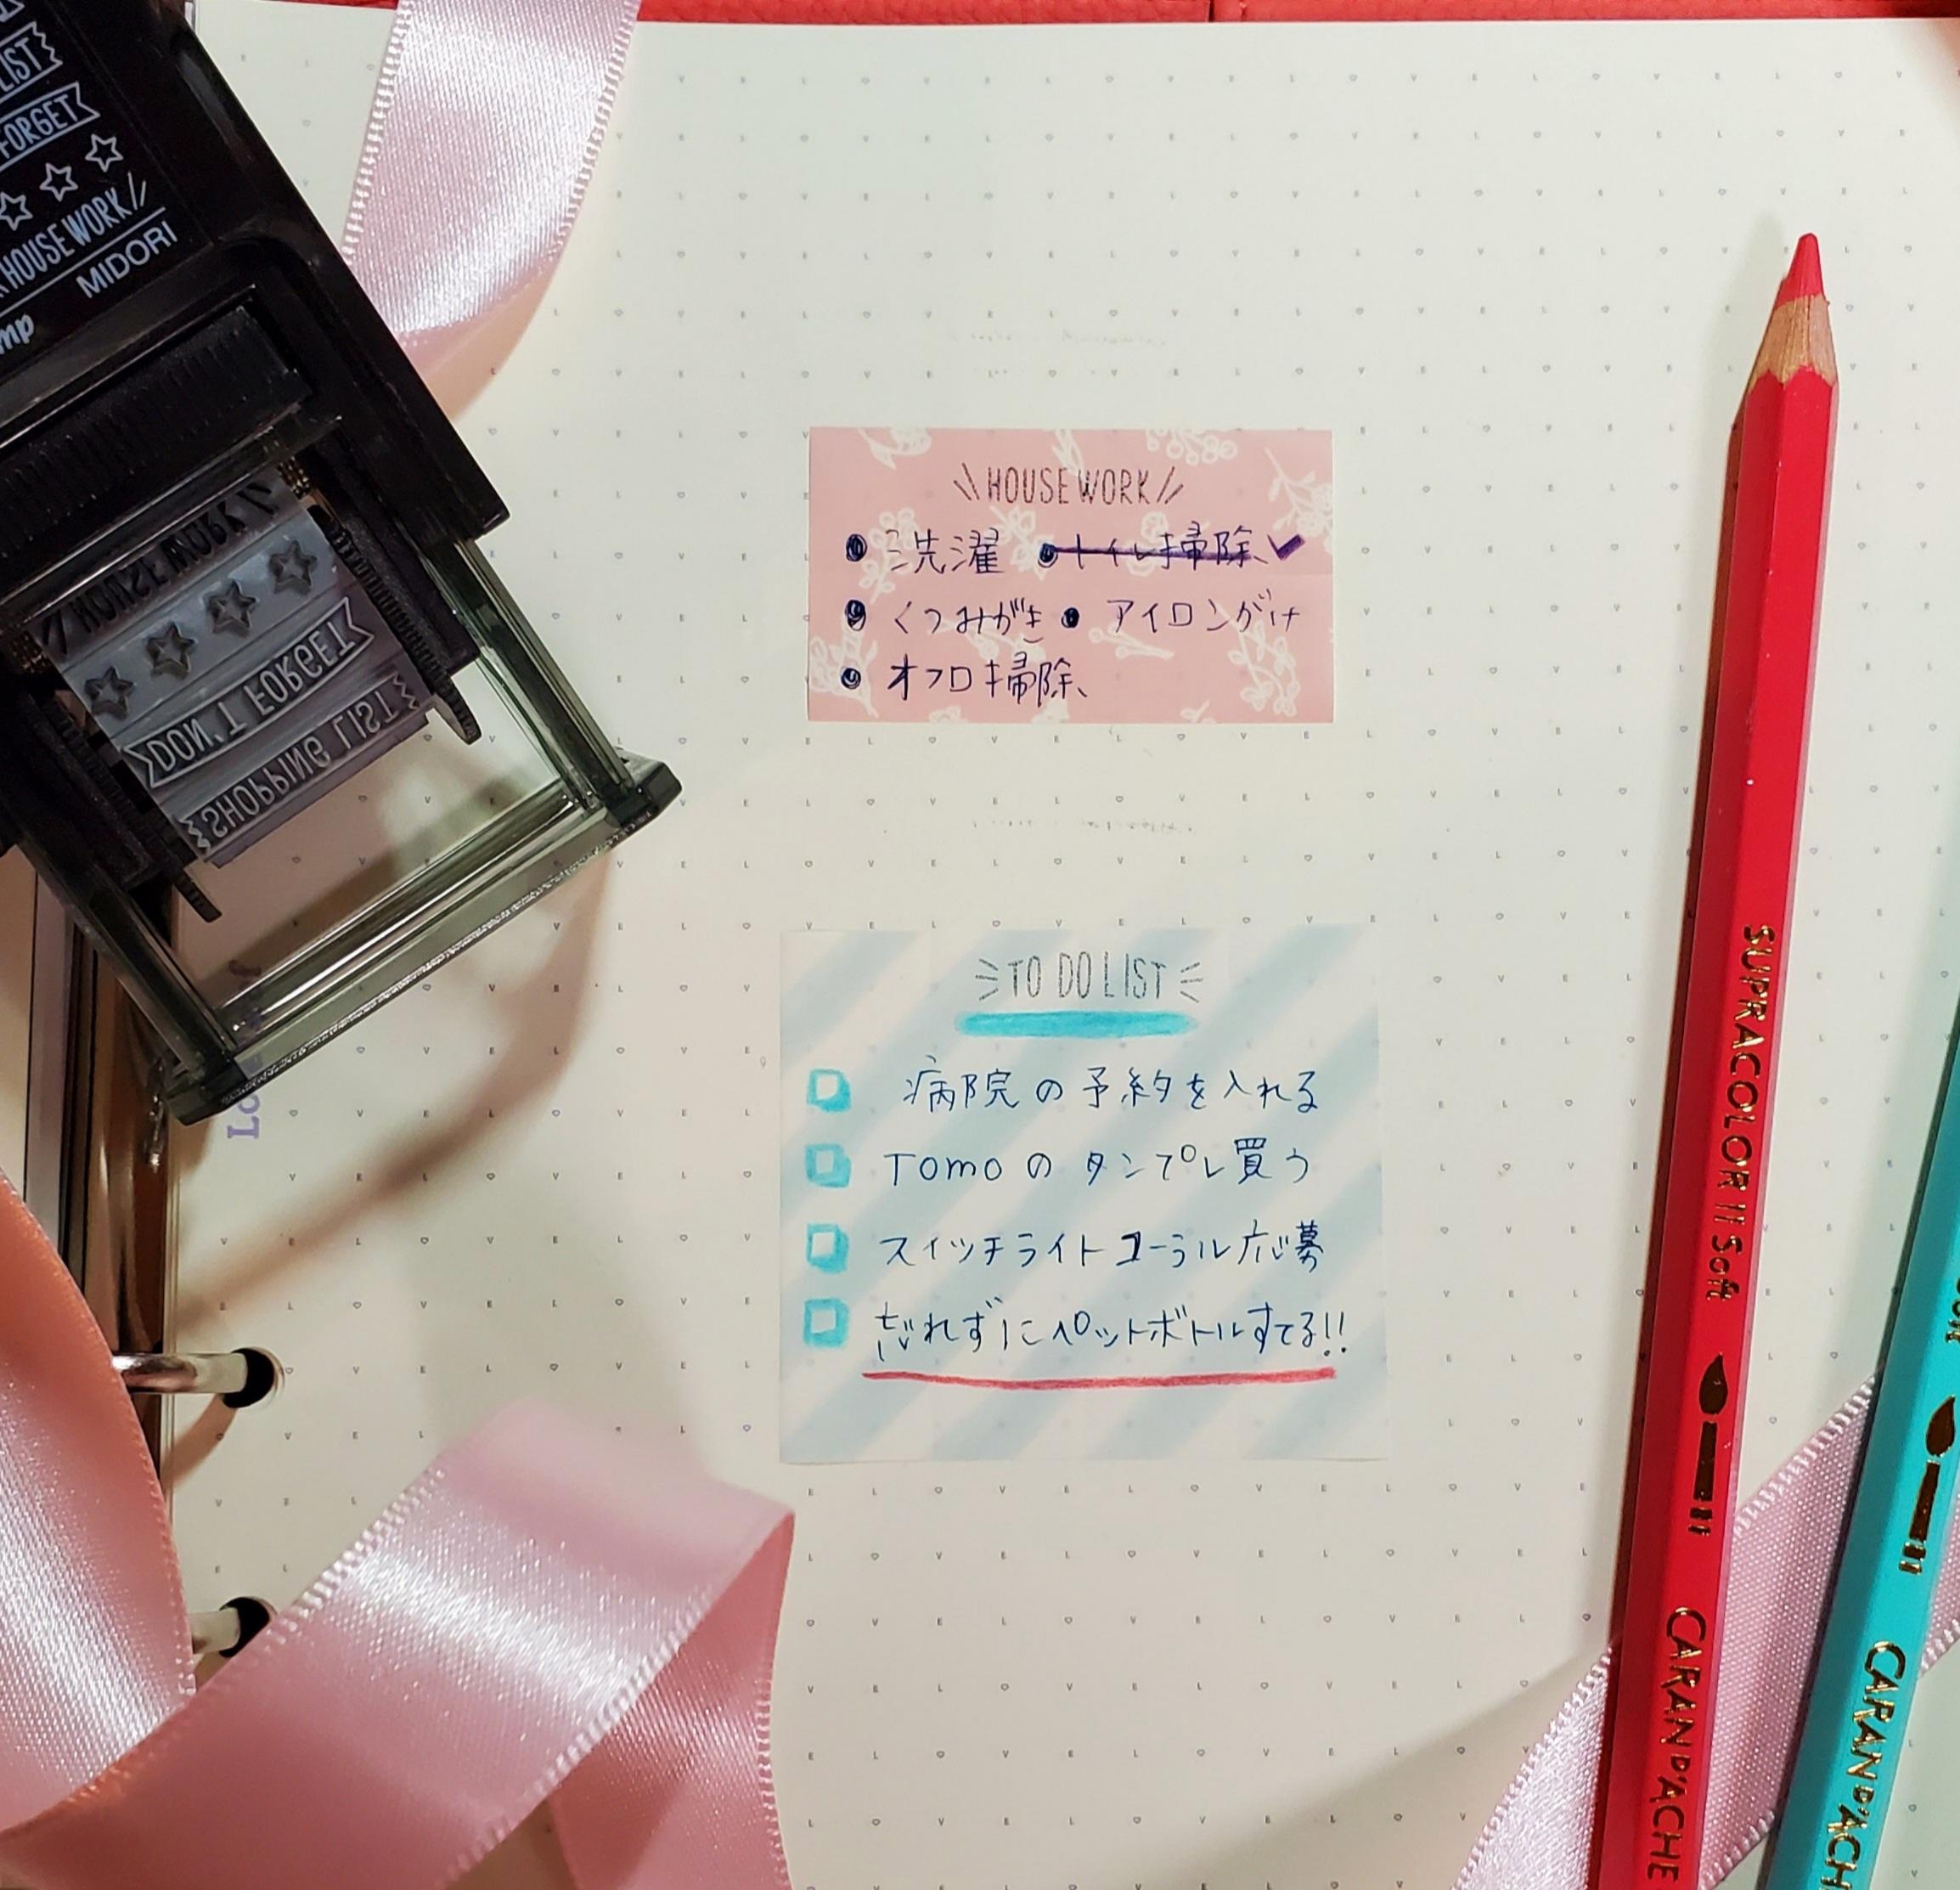 LIST
FORGET
HOUSE WORK
MIDORI
HOUSE WORK
DON'T FORGET
SHOPPING LIST
HOUSE WORK
● 洗濯 ● トイレ掃除 ✓
● くつみがき ● アイロンがけ
● オフロ掃除
TO DO LIST
病院の予約を入れる
TOMOのタンプレ買う
スイッチライトコーラル応募
忘れずにペットボトルすてる!!
SUPRACOLOR II Soft
CARAN D'ACHE
CARAN D'ACH